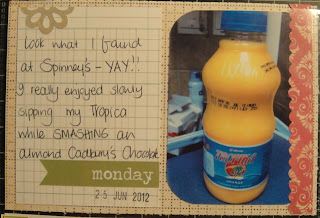 Look what I found
at Spinney's - YAY!!
I really enjoyed slowly
sipping my Tropica
while SMASHING an
almond Cadbury's Chocolate
monday
25 JUN 2012